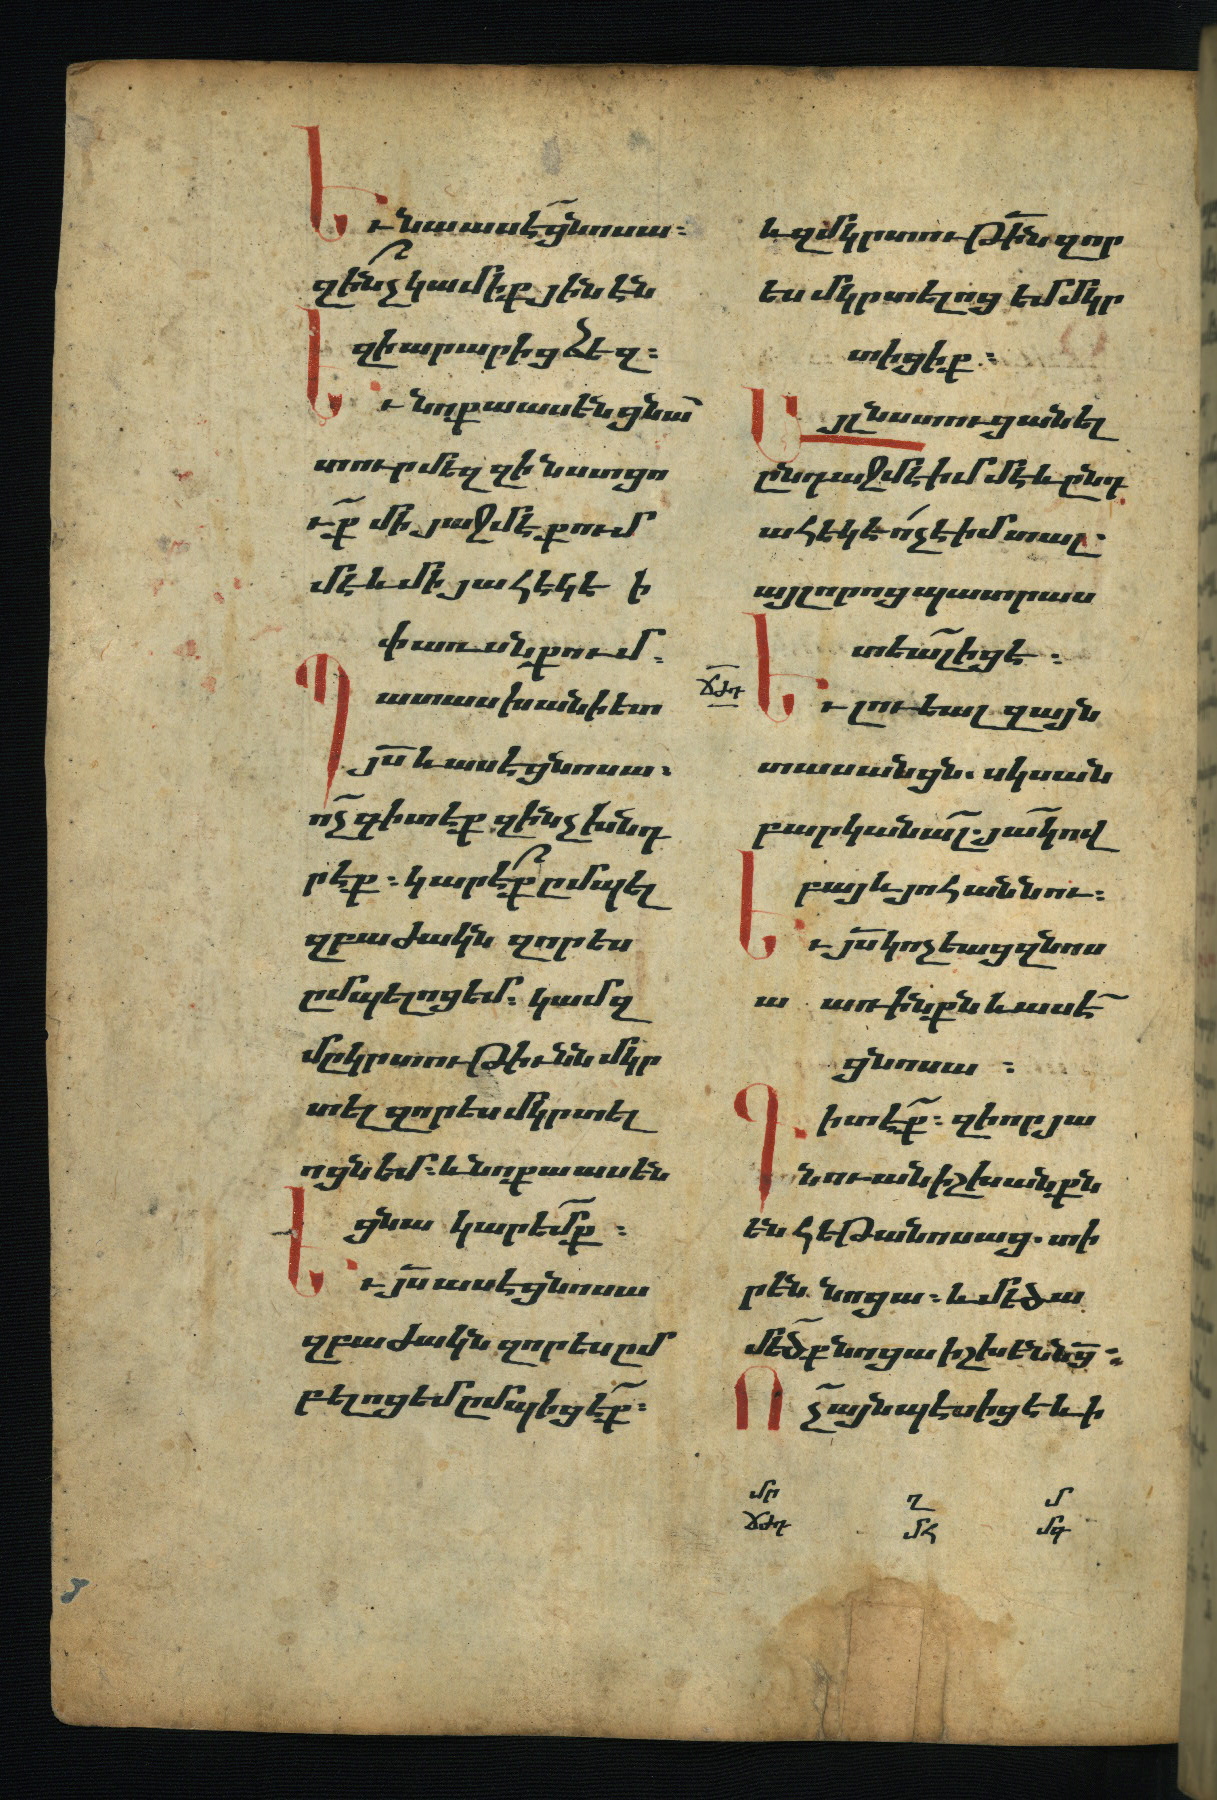 Եւ նա ասէ ցնոսա։
զինչ կամիք յինէն
զի արարից ձեզ։
Եւ նոքա ասեն ցնա՝
տուր մեզ զի նստցո
ւք մի յաջմէ քում
մէ և մի յահեկէ ի
փառսն քում։
Պատասխանի ետ
յս և ասէ ցնոսա։
ոչ գիտէք զինչ խնդ
րէք։ կարէք ըմպել
զբաժակն զոր ես
ըմպելոց եմ։ կամ զ
մըկրտութիւնն մկր
տել զոր ես մկրտել
ոցն եմ։ և նոքա ասեն
ցնա կարեմք։
Եւ յս ասէ ցնոսա
զբաժակն զոր ես ըմ
բելոց եմ ըմպիցէք։
և զմկրտութին զոր
ես մկրտելոց եմ մկր
տիցիք։
Այլ նստուցանել
ընդ աջմէ իմմէ և ընդ
ահեկէ ոչ է իմ տալ։
այլ որոց պատրաս
տեալ իցէ։
ճժդ
Եւ լուեալ զայն
տասանցն. սկսան
բարկանալ. յակով
բայ և յոհաննու։
Եւ յս կոչեաց զնոս
ա առ ինքն և ասէ
ցնոսա։
Գիտէք։ զի որ յա
նուանի իշխանքն
են հեթանոսաց. տի
րեն նոցա։ և մեծա
մեծք նոցա իշխեն նց։
Ոչ այնպէս իցէ և ի
մը ղ մ
ճժդ մհ մգ